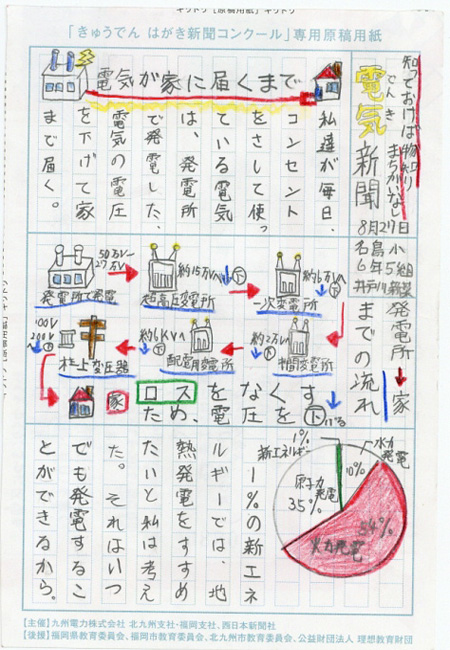 「きゅうでん はがき新聞コンクール」専用原稿用紙
知っておけば物知り
まちがいなし
電気新聞
でんき
8月27日
名島小
6年5組
電気が家に届くまで
私達が毎日、
コンセント
をさして使っ
ている電気
は、発電所
で発電した、
電気の電圧
を下げて家
まで届く。
発電所→家
までの流れ
発電所で発電
50万V~
27万V
超高圧変電所
約15万Vへ下
一次変電所
約6万Vへ下
中間変電所
約2万Vへ下
配電用変電所
約6KVへ下
柱上変圧器
100V
200Vへ下
家
ロスをなくす
ため、電圧を下げる
1%の新エネ
ルギーでは、地
熱発電をすすめ
たいと私は考え
た。それはいつ
でも発電するこ
とができるから。
1%
新エネルギー
水力発電
10%
原子力発電
35%
54%
火力発電
【主催】九州電力株式会社 北九州支社・福岡支社、西日本新聞社
【後援】福岡県教育委員会、福岡市教育委員会、北九州市教育委員会、公益財団法人 理想教育財団